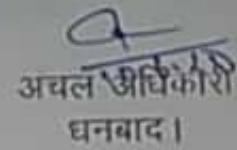 अचल अधिकारी
धनबाद।